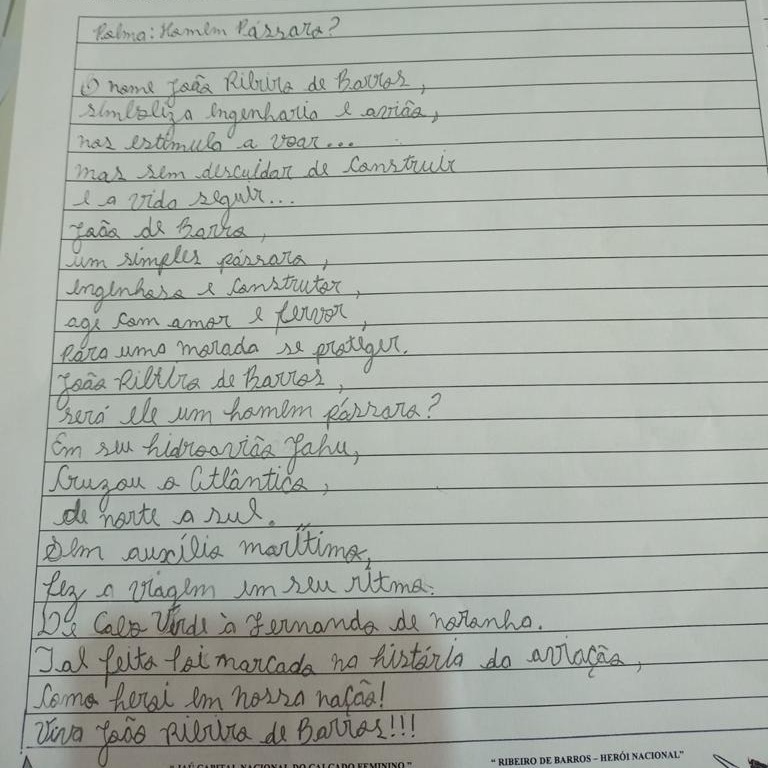 Poema: Homem Pássaro?
O nome João Ribeiro de Barros,
simboliza engenharia e avião,
nos estimula a voar...
mas sem descuidar de construir
e a vida seguir...
João de Barro,
um simples pássaro,
engenhoso e construtor,
age com amor e fervor,
para uma morada se proteger.
João Ribeiro de Barros,
será ele um homem pássaro?
Em seu hidroavião Jahu,
Cruzou o Atlântico,
de norte a sul.
Sem auxílio marítimo,
fez a viagem em seu ritmo.
De Cabo Verde à Fernando de noronha.
Tal feito foi marcado na história da aviação,
como herói em nossa nação!
Viva João Ribeiro de Barros!!!
"JAÚ CAPITAL NACIONAL DO CALÇADO FEMININO" "RIBEIRO DE BARROS – HERÓI NACIONAL"